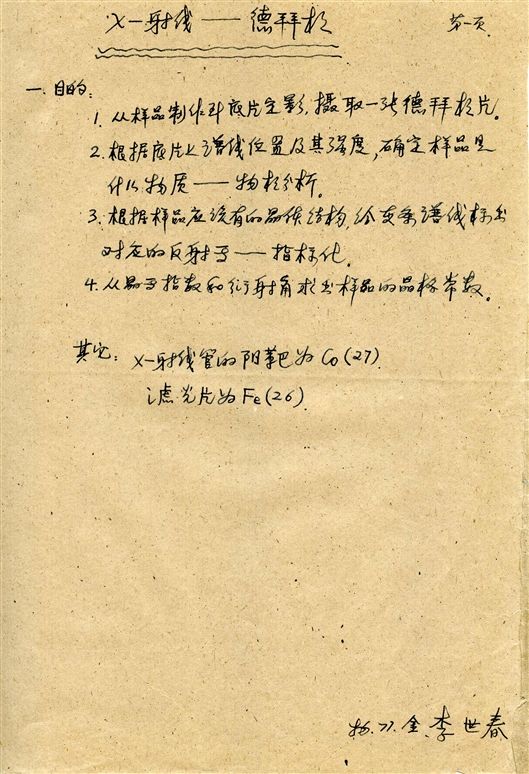 X—射线——德拜相
第一页
一. 目的:
1. 从样品制作到底片定影,摄取一张德拜相片。
2. 根据底片上谱线位置及其强度,确定样品是
什么物质——物相分析。
3. 根据样品应该有的晶体结构,给支条谱线标出
对应的反射子——指标化。
4. 从晶子指数和衍射角求出样品的晶格常数。
其它: X—射线管的阳靶为Co(27)
滤光片为Fe(26)
物.77.金.李世春